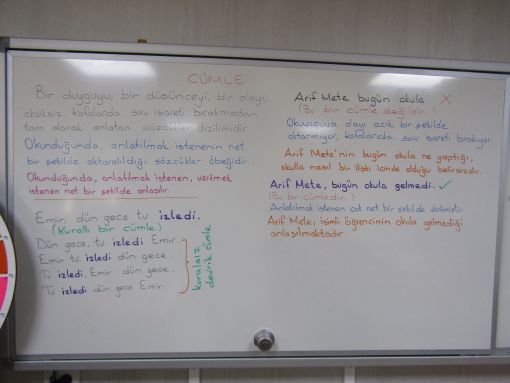 CÜMLE
Bir duyguyu, bir düşünceyi, bir olayı,
eksiksiz, kafalarda soru işareti bırakmadan
tam olarak anlatan sözcükler dizilimidir.
Okunduğunda, anlatılmak istenenin net
bir şekilde aktarıldığı sözcükler öbeğidir.
Okunduğunda, anlatılmak istenen, verilmek
istenen net bir şekilde anlaşılır.
Emir dün gece tv. izledi.
(Kurallı bir cümle)
Dün gece, tv. izledi Emir.
Emir tv. izledi dün gece.
Tv. izledi, Emir dün gece.
Tv. izledi dün gece Emir.
kuralsız
devrik cümle
Arif Mete bugün okula X
(Bu bir cümle değildir.)
Okuyucuya olayı açık bir şekilde
aktarmıyor, kafalarda soru işareti bırakıyor.
Arif Mete'nin bugün okula ne yaptığı,
okulla nasıl bir ilişki içinde olduğu belirsizdir.
Arif Mete, bugün okula gelmedi. ✓
(Bu bir cümledir.)
Anlatılmak istenen çok net bir şekilde verilmiştir.
Arif Mete, isimli öğrencinin okula gelmediği
anlaşılmaktadır.